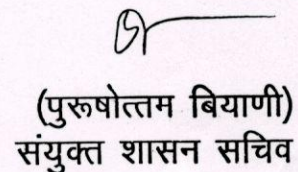 (पुरूषोत्तम बियाणी)
संयुक्त शासन सचिव